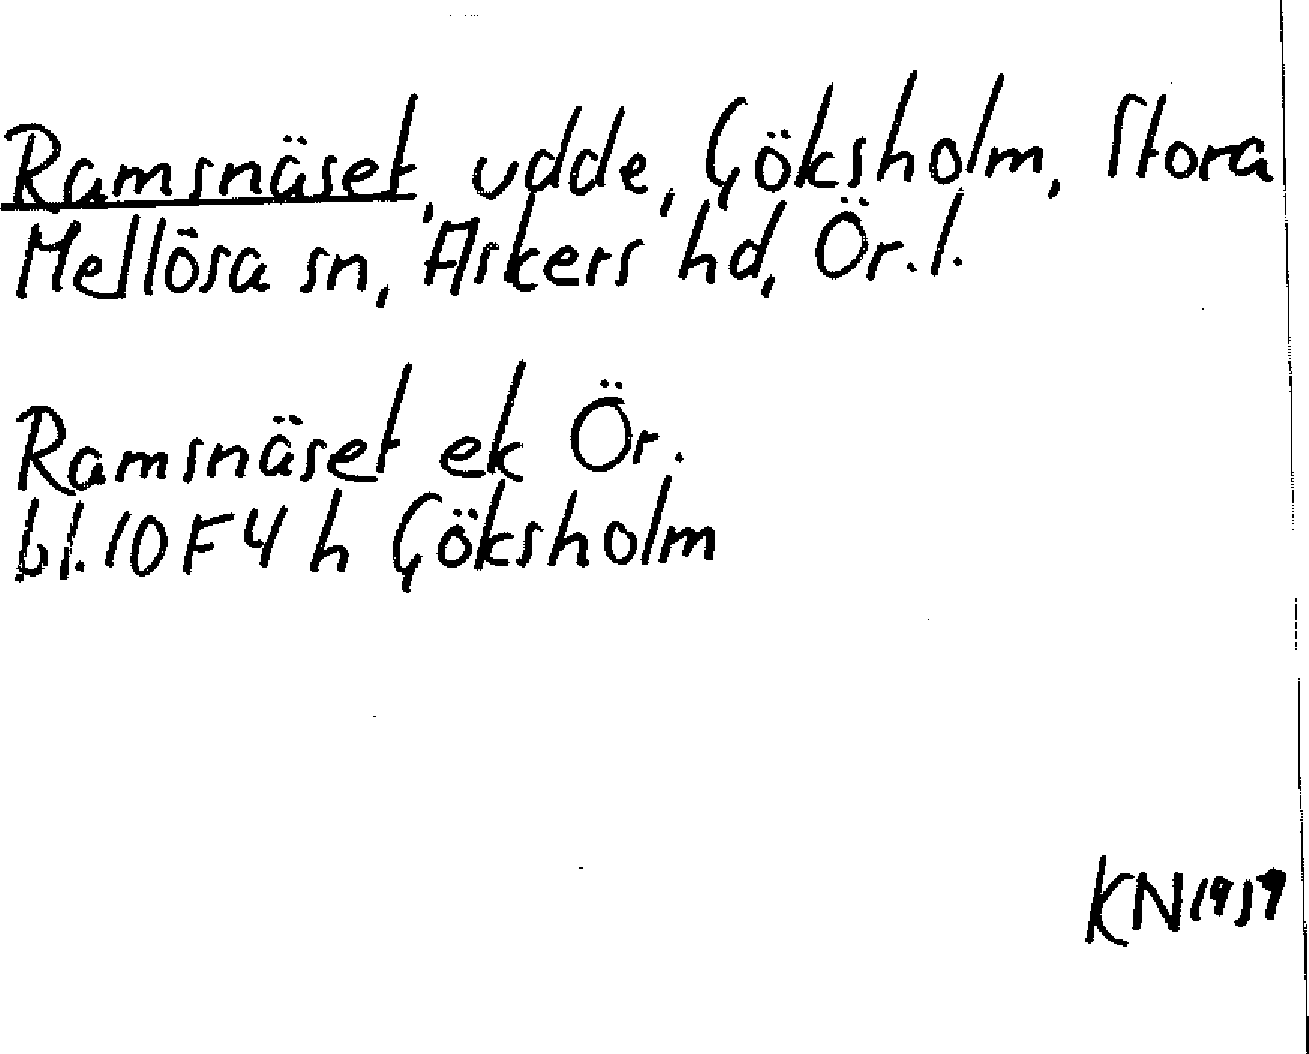 Ramsnäset, udde, Göksholm, Stora
Mellösa sn, Askers hd, Ör.l.
Ramsnäset ek Ör.
bl.10F4h Göksholm
KN